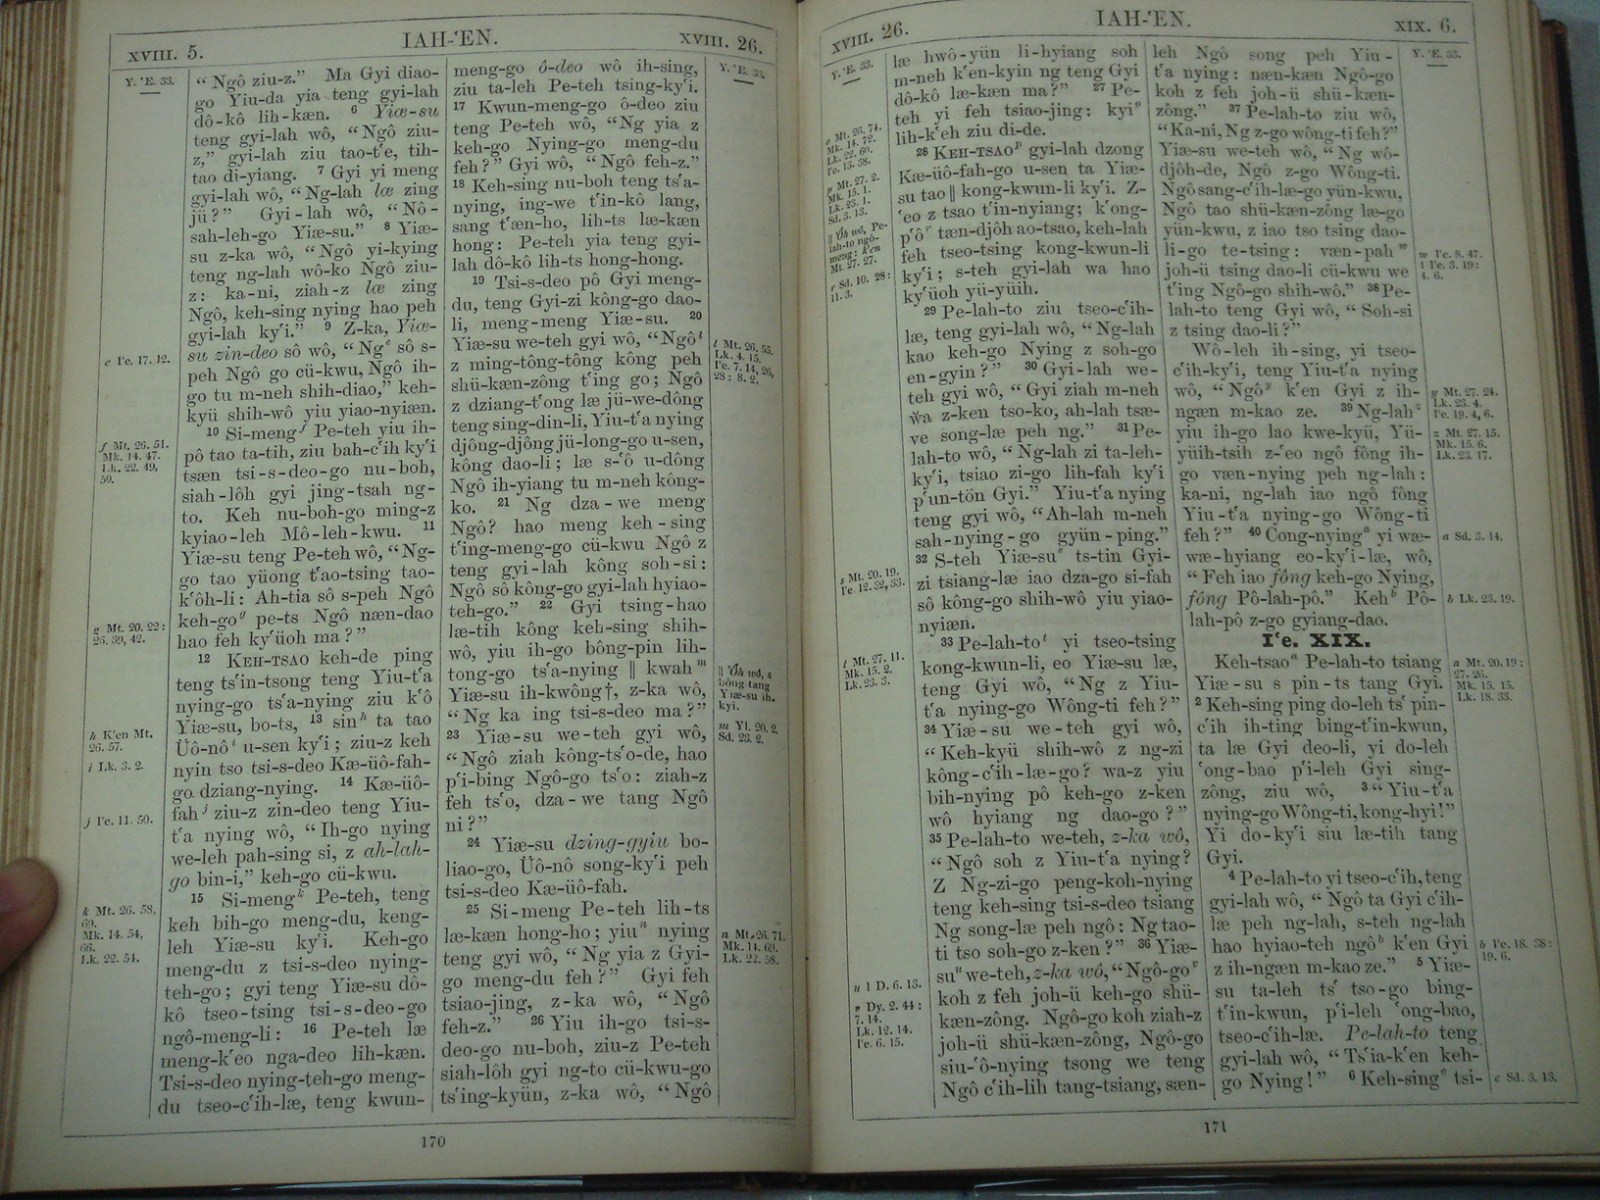 XVIII. 5. IAH-‘EN. XVIII. 26.
Y. ‘E. 33.
“ Ngô ziu-z.” Ma Gyi diao-
go Yiu-da yia teng gyi-lah
dô-kô lih-kæn. ⁶ Yiæ-su
teng gyi-lah wô, “ Ngô ziu-
z,” gyi-lah ziu tao-t‘e, tih-
tao di-yiang. ⁷ Gyi yi meng
gyi-lah wô, “ Ng-lah læ zing
jü ? ” Gyi - lah wô, “ Nô -
sah-leh-go Yiæ-su.” ⁸ Yiæ-
su z-ka wô, “ Ngô yi-kying
teng ng-lah wô-ko Ngô ziu-
z : ka-ni, ziah-z læ zing
Ngô, keh-sing nying hao peh
gyi-lah ky‘i.” ⁹ Z-ka, Yiæ-
su zin-deo sô wô, “ Ngᵉ sô s-
peh Ngô go cü-kwu, Ngô ih-
go tu m-neh shih-diao,” keh-
kyü shih-wô yiu yiao-nyiæn.
¹⁰ Si-mengᶠ Pe-teh yiu ih-
pô tao ta-tih, ziu bah-c‘ih ky‘i
tsæn tsi - s - deo-go nu-boh,
siah-lôh gyi jing-tsah ng-
to. Keh nu-boh-go ming-z
kyiao-leh Mô-leh-kwu. ¹¹
Yiæ-su teng Pe-teh wô, “ Ng-
go tao yüong t‘ao-tsing tao-
k‘ôh-li : Ah-tia sô s-peh Ngô
keh-goᵍ pe-ts Ngô næn-dao
hao feh ky‘üoh ma ? ”
¹² KEH-TSAO keh-de ping
teng ts‘in-tsong teng Yiu-t‘a
nying-go ts‘a-nying ziu k‘ô
Yiæ-su, bo-ts, ¹³ sinʰ ta tao
Üô-nôⁱ u-sen ky‘i ; ziu-z keh
nyin tso tsi-s-deo Kæ-üô-fah-
go dziang-nying. ¹⁴ Kæ-üô-
fahʲ ziu-z zin-deo teng Yiu-
t‘a nying wô, “ Ih-go nying
we-leh pah-sing si, z ah-lah-
go bin-i,” keh-go cü-kwu.
¹⁵ Si-mengᵏ Pe-teh, teng
keh bih-go meng-du, keng-
leh Yiæ-su ky‘i. Keh-go
meng-du z tsi-s-deo nying-
teh-go ; gyi teng Yiæ-su dô-
kô tseo-tsing tsi - s - deo - go
ngô-meng-li : ¹⁶ Pe-teh læ
meng-k‘eo nga-deo lih-kæn.
Tsi-s-deo nying-teh-go meng-
du tseo-c‘ih-læ, teng kwun-
e I‘e. 17. 12.
f Mt. 26. 51.
Mk. 14. 47.
Lk. 22. 49,
50.
g Mt. 20. 22 :
26. 39, 42.
h K‘en Mt.
26. 57.
i Lk. 3. 2.
j I‘e. 11. 50.
k Mt. 26. 58,
69.
Mk. 14. 54,
66.
Lk. 22. 54.
meng-go ô-deo wô ih-sing,
ziu ta-leh Pe-teh tsing-ky‘i.
¹⁷ Kwun-meng-go ô-deo ziu
teng Pe-teh wô, “ Ng yia z
keh-go Nying-go meng-du
feh ? ” Gyi wô, “ Ngô feh-z.”
¹⁸ Keh-sing nu-boh teng ts‘a-
nying, ing-we t‘in-kô lang,
sang t‘æn-ho, lih-ts læ-kæn
hong : Pe-teh yia teng gyi-
lah dô-kô lih-ts hong-hong.
¹⁹ Tsi-s-deo pô Gyi meng-
du, teng Gyi-zi kông-go dao-
li, meng-meng Yiæ-su. ²⁰
Yiæ-su we-teh gyi wô, “ Ngôˡ
z ming-tông-tông kông peh
shü-kæn-zông t‘ing go ; Ngô
z dziang-t‘ong læ jü-we-dông
teng sing-din-li, Yiu-t‘a nying
djông-djông jü-long-go u-sen,
kông dao-li ; læ s-‘ô u-dông
Ngô ih-yiang tu m-neh kông-
ko. ²¹ Ng dza - we meng
Ngô ? hao meng keh - sing
t‘ing-meng-go cü-kwu Ngô z
teng gyi-lah kông soh-si :
Ngô sô kông-go gyi-lah hyiao-
teh-go.” ²² Gyi tsing-hao
læ-tih kông keh-sing shih-
wô, yiu ih-go bông-pin lih-
tong-go ts‘a-nying ‖ kwahᵐ
Yiæ-su ih-kwông†, z-ka wô,
“ Ng ka ing tsi-s-deo ma ? ”
²³ Yiæ-su we-teh gyi wô,
“ Ngô ziah kông-ts‘o-de, hao
p‘i-bing Ngô-go ts‘o : ziah-z
feh ts‘o, dza - we tang Ngô
ni ? ”
²⁴ Yiæ-su dzing-gyiu bo-
liao-go, Üô-nô song-ky‘i peh
tsi-s-deo Kæ-üô-fah.
²⁵ Si-meng Pe-teh lih-ts
læ-kæn hong-ho ; yiuⁿ nying
teng gyi wô, “ Ng yia z Gyi-
go meng-du feh ? ” Gyi feh
tsiao-jing, z-ka wô, “ Ngô
feh-z.” ²⁶ Yiu ih-go tsi-s-
deo-go nu-boh, ziu-z Pe-teh
siah-lôh gyi ng-to cü-kwu-go
ts‘ing-kyün, z-ka wô, “ Ngô
l Mt. 26. 55.
Lk. 4. 15.
I‘e. 7. 14, 26,
28 : 8. 2.
‖ ‘Ôh wô, s
bông-tang
Yiæ-su ih-
kyi.
m Yl. 20. 2.
Sd. 23. 2.
n Mt. 26. 71.
Mk. 14. 69.
Lk. 22. 58.
170
XVIII. 26. IAH-‘EN. XIX. 6.
Y. ‘E. 33.
læ hwô-yün li-hyiang soh
m-neh k‘en-kyin ng teng Gyi
dô-kô læ-kæn ma ? ” ²⁷ Pe-
teh yi feh tsiao-jing : kyiᵒ
lih-k‘eh ziu di-de.
²⁸ KEH-TSAOᵖ gyi-lah dzong
Kæ-üô-fah-go u-sen ta Yiæ-
su tao ‖ kong-kwun-li ky‘i. Z-
‘eo z tsao t‘in-nyiang ; k‘ong-
p‘ôʳ tæn-djôh ao-tsao, keh-lah
feh tseo-tsing kong-kwun-li
ky‘i ; s-teh gyi-lah wa hao
ky‘üoh yü-yüih.
²⁹ Pe-lah-to ziu tseo-c‘ih-
læ, teng gyi-lah wô, “ Ng-lah
kao keh-go Nying z soh-go
en-gyin ? ” ³⁰ Gyi-lah we-
teh gyi wô, “ Gyi ziah m-neh
wa z-ken tso-ko, ah-lah tsæ-
ve song-læ peh ng.” ³¹ Pe-
lah-to wô, “ Ng-lah zi ta-leh-
ky‘i, tsiao zi-go lih-fah ky‘i
p‘un-tön Gyi.” Yiu-t‘a nying
teng gyi wô, “ Ah-lah m-neh
sah-nying - go gyün - ping.”
³² S-teh Yiæ-suˢ ts-tin Gyi-
zi tsiang-læ iao dza-go si-fah
sô kông-go shih-wô yiu yiao-
nyiæn.
³³ Pe-lah-toᵗ yi tseo-tsing
kong-kwun-li, eo Yiæ-su læ,
teng Gyi wô, “ Ng z Yiu-
t‘a nying-go Wông-ti feh ? ”
³⁴ Yiæ - su we - teh gyi wô,
“ Keh-kyü shih-wô z ng-zi
kông - c‘ih - læ-go ? wa-z yiu
bih-nying pô keh-go z-ken
wô hyiang ng dao-go ? ”
³⁵ Pe-lah-to we-teh, z-ka wô,
“ Ngô soh z Yiu-t‘a nying ?
Z Ng-zi-go peng-koh-nying
teng keh-sing tsi-s-deo tsiang
Ng song-læ peh ngô : Ng tao-
ti tso soh-go z-ken ? ” ³⁶ Yiæ-
suᵘ we-teh, z-ka wô, “ Ngô-goᵛ
koh z feh joh-ü keh-go shü-
kæn-zông. Ngô-go koh ziah-z
joh-ü shü-kæn-zông, Ngô-go
siu-‘ô-nying tsong we teng
Ngô c‘ih-lih tang-tsiang, sæn-
o Mt. 26. 74.
Mk. 14. 72.
Lk. 22. 60.
I‘e. 13. 38.
p Mt. 27. 2.
Mk. 15. 1.
Lk. 23. 1.
Sd. 3. 13.
‖ ‘Ôh wô, Pe-
lah-to ngô-
meng : k‘en
Mt. 27. 27.
r Sd. 10. 28 :
11. 3.
s Mt. 20. 19.
I‘e. 12. 32, 33.
t Mt. 27. 11.
Mk. 15. 2.
Lk. 23. 3.
u 1 D. 6. 13.
v Dy. 2. 44 :
7. 14.
Lk. 12. 14.
I‘e. 6. 15.
leh Ngô song peh Yiu -
t‘a nying : næn-kæn Ngô-go
koh z feh joh-ü shü-kæn-
zông.” ³⁷ Pe-lah-to ziu wô,
“ Ka-ni, Ng z-go wông-ti feh ? ”
Yiæ-su we-teh wô, “ Ng wô-
djôh-de, Ngô z-go Wông-ti.
Ngô sang-c‘ih-læ-go yün-kwu,
Ngô tao shü-kæn-zông læ-go
yün-kwu, z iao tso tsing dao-
li-go te-tsing : væn-pahʷ
joh-ü tsing dao-li cü-kwu we
t‘ing Ngô-go shih-wô.” ³⁸ Pe-
lah-to teng Gyi wô, “ Soh-si
z tsing dao-li ? ”
Wô-leh ih-sing, yi tseo-
c‘ih-ky‘i, teng Yiu-t‘a nying
wô, “ Ngôʸ k‘en Gyi z ih-
ngæn m-kao ze. ³⁹ Ng-lahᶻ
yiu ih-go lao kwe-kyü, Yü-
yüih-tsih z-‘eo ngô fông ih-
go væn-nying peh ng-lah :
ka-ni, ng-lah iao ngô fông
Yiu - t‘a nying-go Wông-ti
feh ? ” ⁴⁰ Cong-nyingᵃ yi wæ-
wæ-hyiang eo-ky‘i-læ, wô,
“ Feh iao fông keh-go Nying,
fông Pô-lah-pô.” Kehᵇ Pô-
lah-pô z-go gyiang-dao.
I‘e. XIX.
Keh-tsaoᵃ Pe-lah-to tsiang
Yiæ - su s pin - ts tang Gyi.
² Keh-sing ping do-leh ts‘ pin-
c‘ih ih-ting bing-t‘in-kwun,
ta læ Gyi deo-li, yi do-leh
‘ong-bao p‘i-leh Gyi sing-
zông, ziu wô, ³ “ Yiu-t‘a
nying-go Wông-ti, kong-hyi ! ”
Yi do-ky‘i siu læ-tih tang
Gyi.
⁴ Pe-lah-to yi tseo-c‘ih, teng
gyi-lah wô, “ Ngô ta Gyi c‘ih-
læ peh ng-lah, s-teh ng-lah
hao hyiao-teh ngôᵇ k‘en Gyi
z ih-ngæn m-kao ze.” ⁵ Yiæ-
su ta-leh ts‘ tso-go bing-
t‘in-kwun, p‘i-leh ‘ong-bao,
tseo-c‘ih-læ. Pe-lah-to teng
gyi-lah wô, “ Ts‘ia-k‘en keh-
go Nying ! ” ⁶ Keh-singᶜ tsi-
Y. ‘E. 33.
w I‘e. 8. 47.
1 I‘e. 3. 19 :
4. 6.
y Mt. 27. 24.
Lk. 23. 4.
I‘e. 19. 4, 6.
z Mt. 27. 15.
Mk. 15. 6.
Lk. 23. 17.
a Sd. 3. 14.
b Lk. 23. 19.
a Mt. 20. 19 :
27. 26.
Mk. 15. 15.
Lk. 18. 33.
b I‘e. 18. 38 :
19. 6.
c Sd. 3. 13.
171